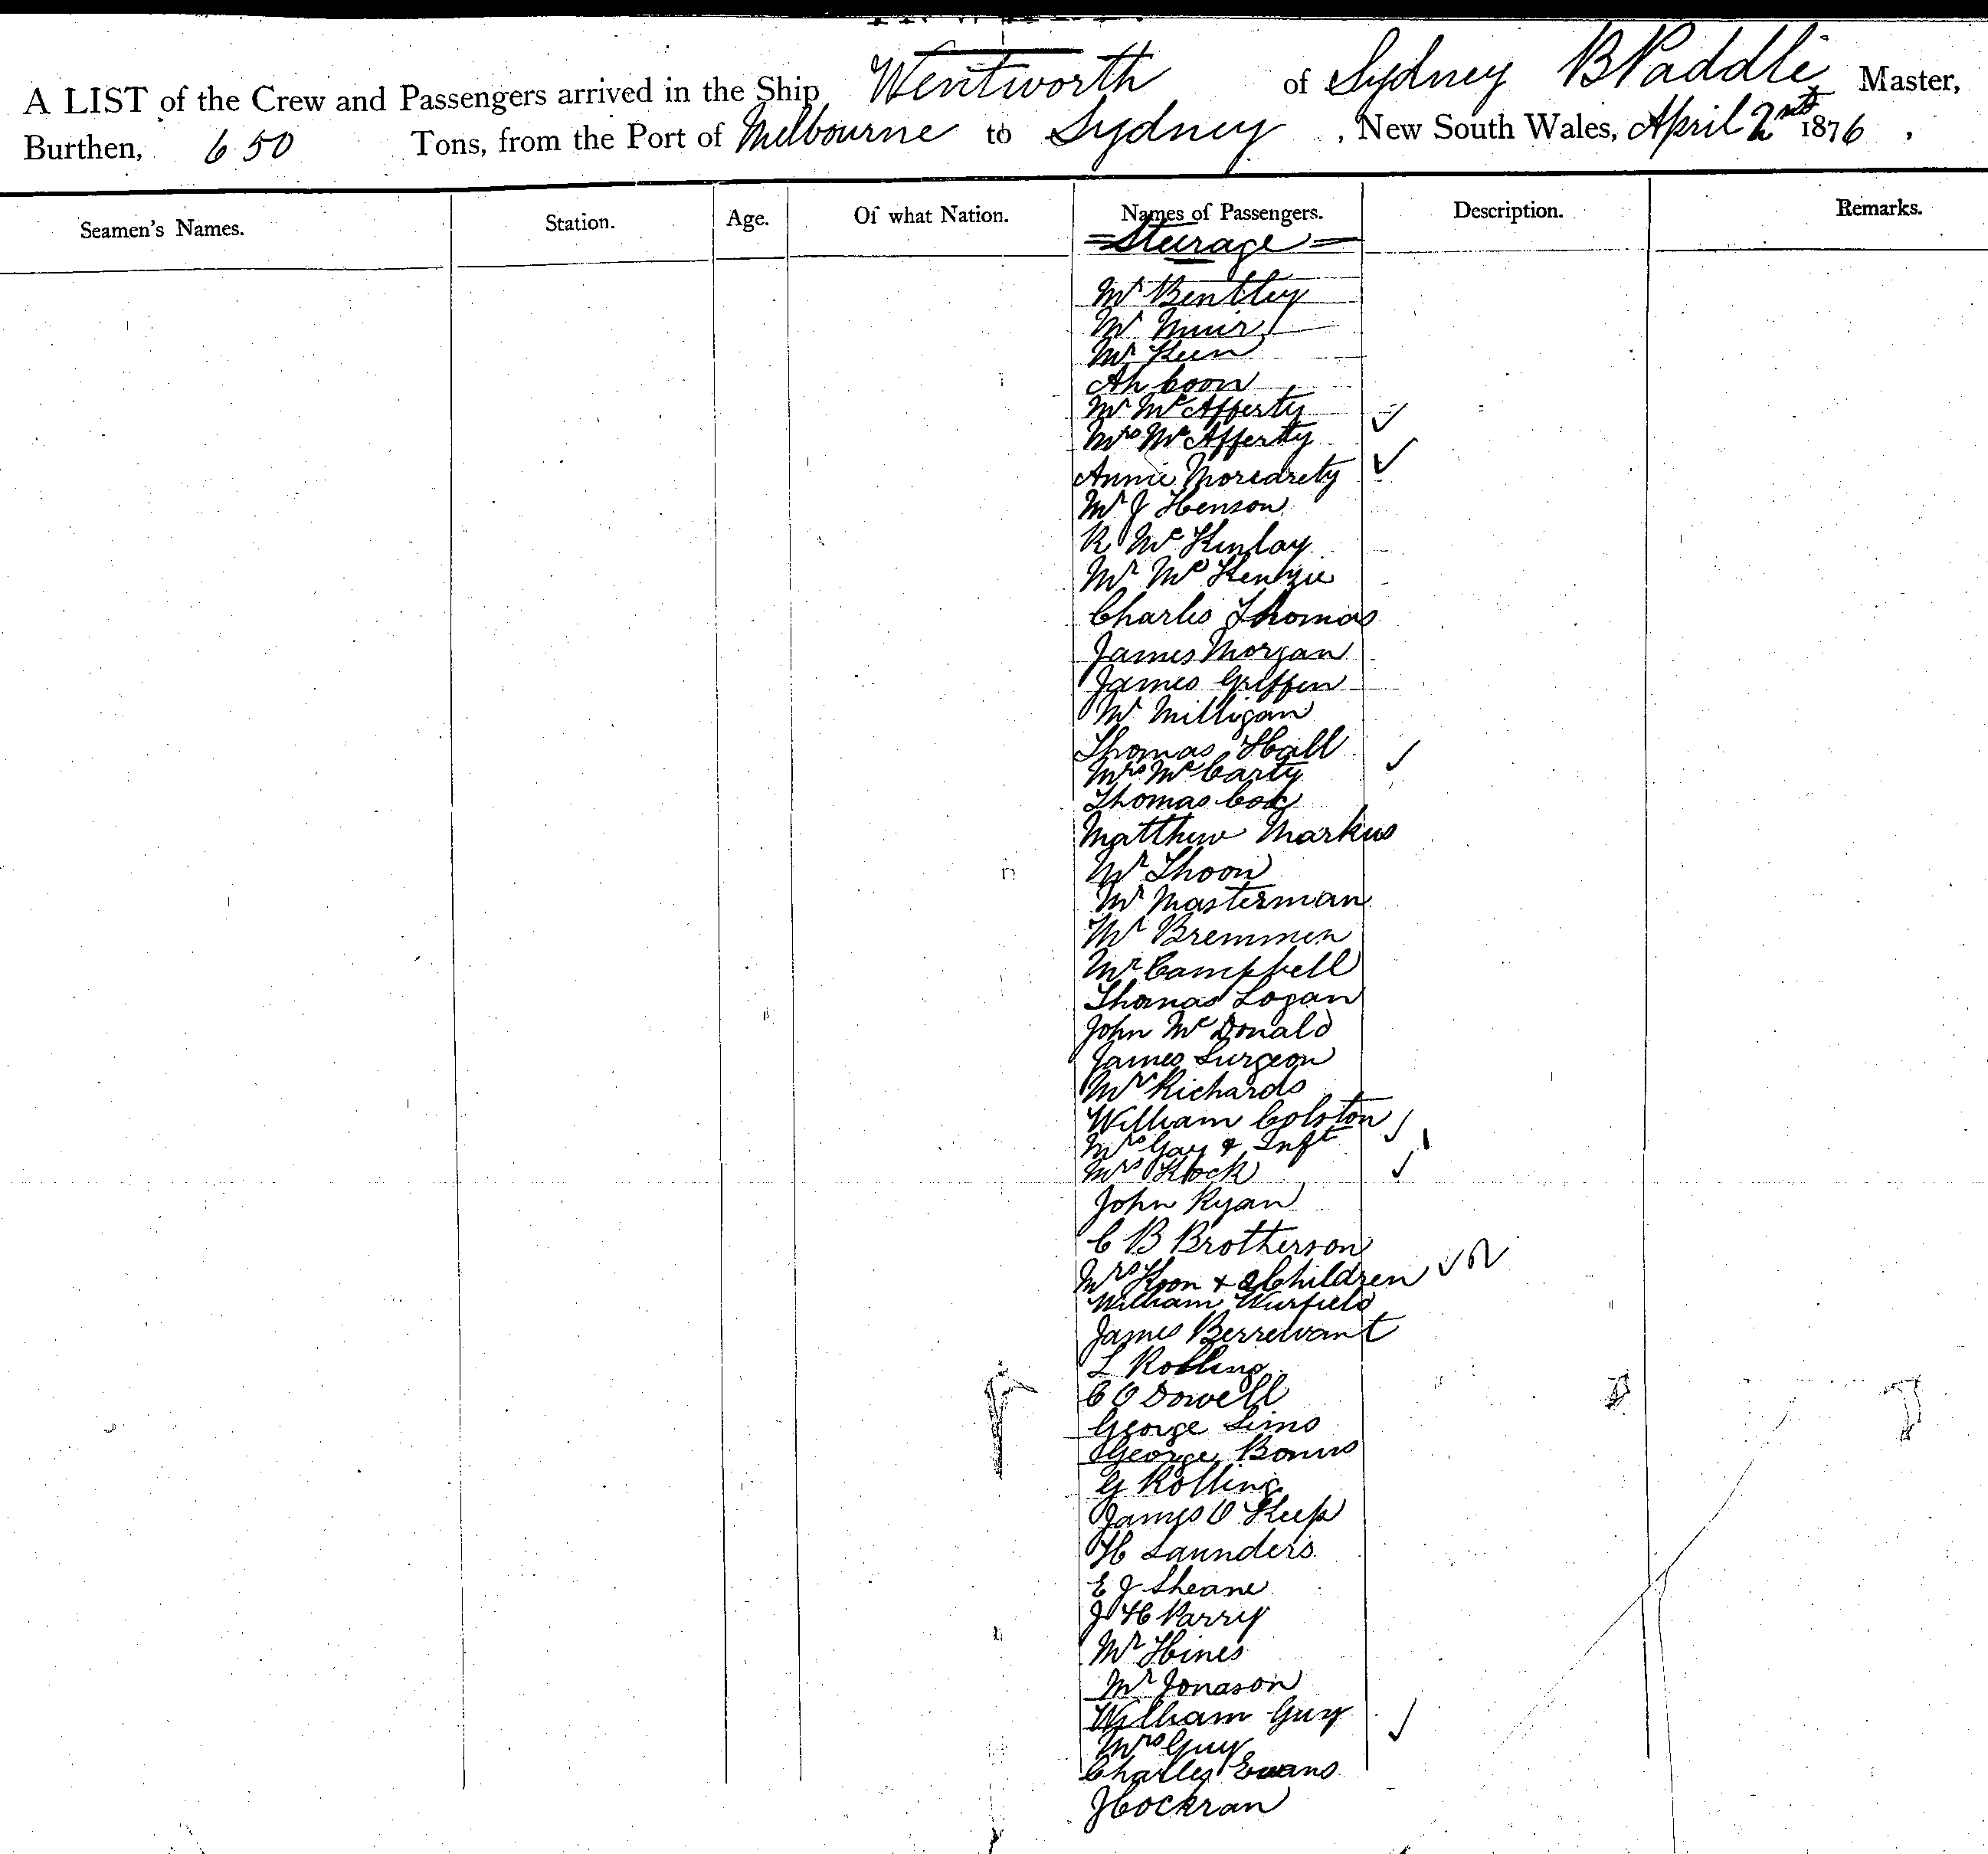 A LIST of the Crew and Passengers arrived in the Ship Wentworth of Sydney B Paddle Master,
Burthen, 650 Tons, from the Port of Melbourne to Sydney, New South Wales, April 2nd 1876.
Seamen's Names. Station. Age. Of what Nation. Names of Passengers. Description. Remarks.
Steerage
Mr Bentley
Mr Muir
Mr Keen
Ah Coon
Mr McAfferty
Mrs McAfferty
Annie Moredrety
Mr J Henson
R McKinlay
Mr McKenzie
Charles Thomas
James Morgan
James Griffin
Mr Milligan
Thomas Hall
Mrs McCarty
Thomas Cox
Matthew Markus
Mr Thoon
Mr Masterman
Mr Bremmen
Mr Campbell
Thomas Logan
John McDonald
James Surgeon
Mr Richards
William Colston
Mrs Gay & Inft
Mrs Klock
John Ryan
C B Brotherson
Mrs Koon & 2 Children
William Wurfield
James Berrewant
L Rolling
C O Dowell
George Sims
George Bonus
G Rolling
James O Keep
H Saunders
E J Sheane
J H Parry
Mr Hines
Mr Jonason
William Guy
Mrs Guy
Charles Evans
J Cockran